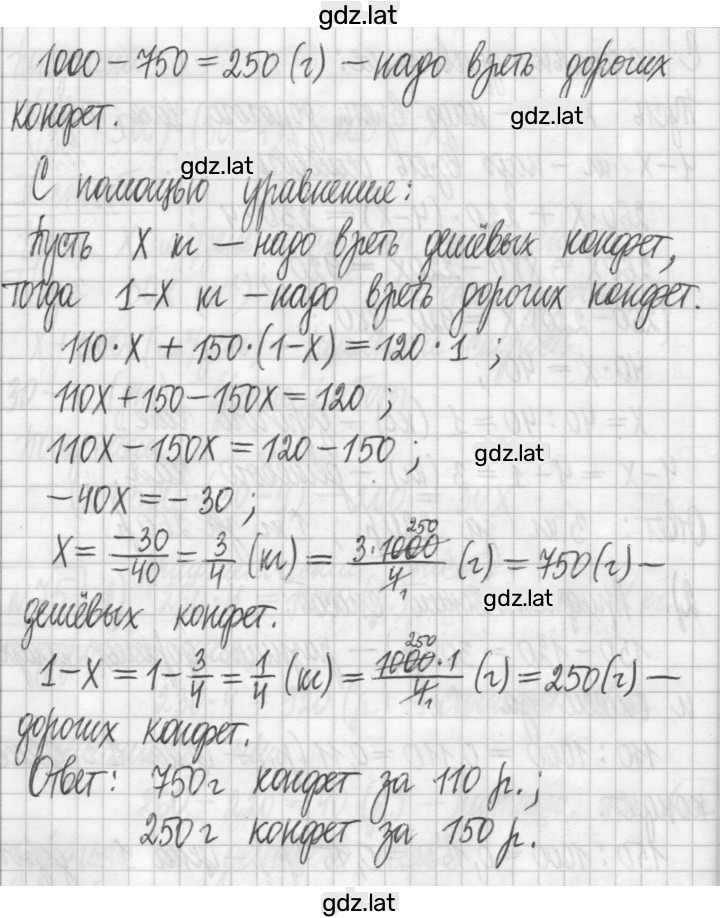 gdz.lat
1000 - 750 = 250 (г) - надо взять дорогих
конфет.
gdz.lat
gdz.lat
С помощью уравнение:
Пусть x кг - надо взять дешёвых конфет,
тогда 1-x кг - надо взять дорогих конфет.
110·x + 150·(1-x) = 120·1 ;
110x + 150 - 150x = 120 ;
110x - 150x = 120 - 150 ;
gdz.lat
-40x = - 30 ;
x = -30/-40 = 3/4 (кг) = 3·1000 250/4 1 (г) = 750 (г) -
gdz.lat
дешёвых конфет.
1-x = 1 - 3/4 = 1/4 (кг) = 1000 250·1/4 1 (г) = 250 (г) -
дорогих конфет.
Ответ: 750 г конфет за 110 р.;
250 г конфет за 150 р.
gdz.lat